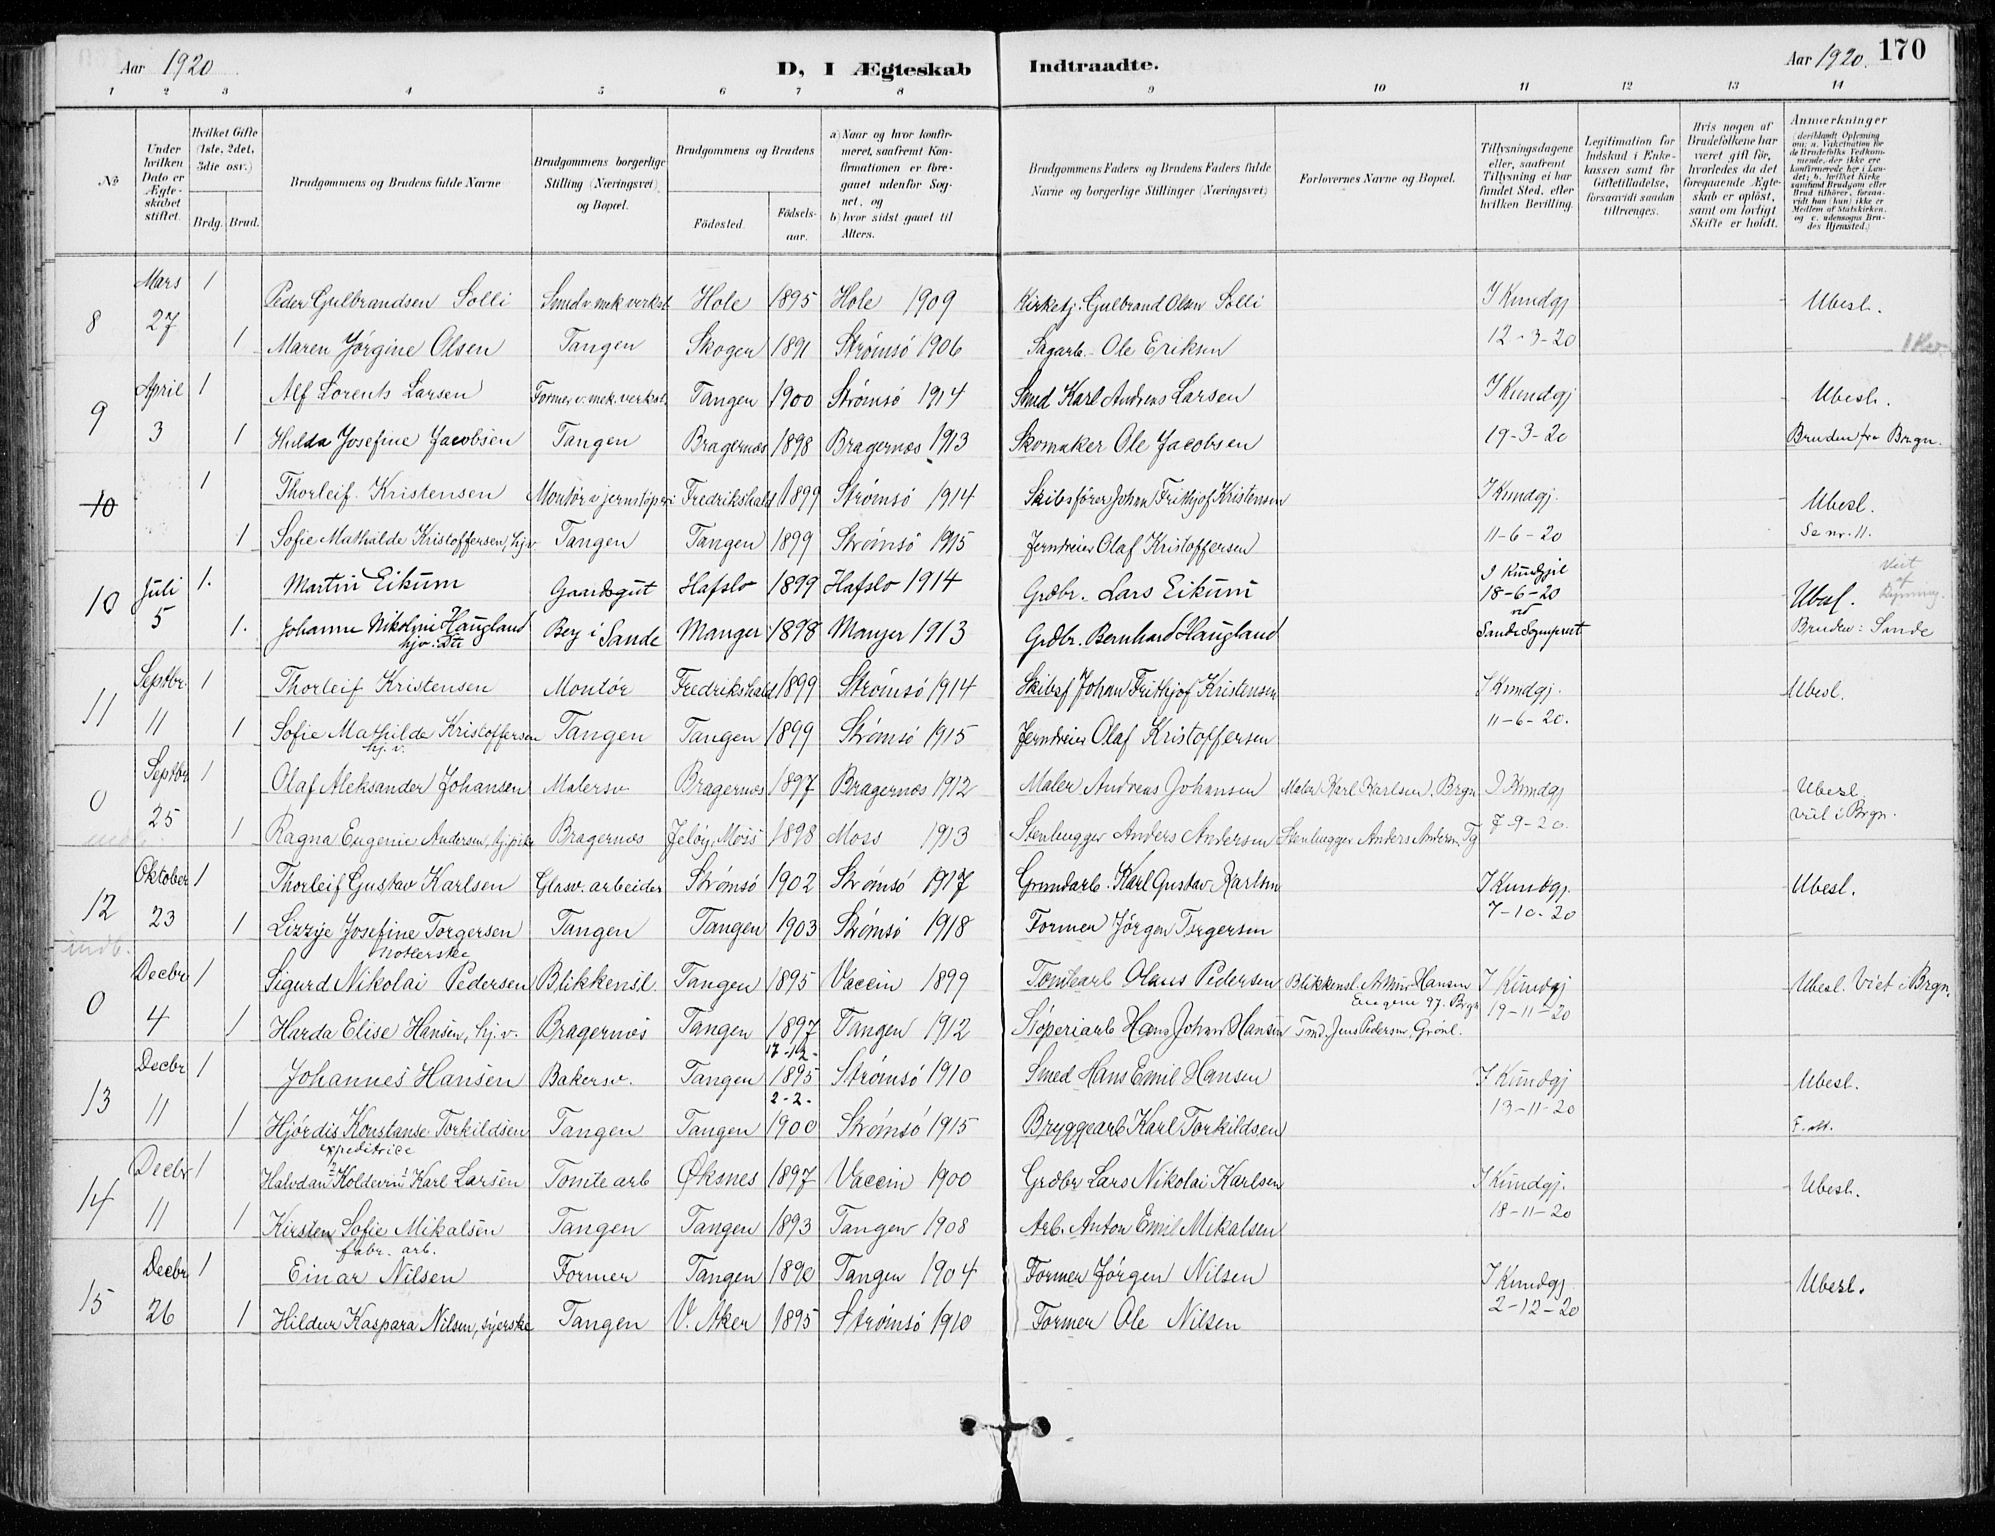 Aar 1920
D, I Ægteskab Indtraadte.
Aar 1920. 170
1 2 3 4 5 6 7 8 9 10 11 12 13 14
No
Under hvilken Dato er Ægteskabet stiftet.
Hvilket Gifte (1ste, 2det, 3die osv.)
Brdg. Brud.
Brudgommens og Brudens fulde Navne
Brudgommens borgerlige Stilling (Næringsvei) og Bopæl.
Brudgommens og Brudens
Fødested. Fødsels-aar.
a) Naar og hvor konfirmeret, saafremt Konfirmationen er foreganet udenfor Sognet, og
b) hvor sidst gaaet til Alters.
Brudgommens Faders og Brudens Faders fulde Navne og borgerlige Stillinger (Næringsvei)
Forlovernes Navne og Bopæl.
Tillysningsdagene eller, saafremt Tillysning ei har fundet Sted, efter hvilken Bevilling.
Legitimation for Indskud i Enkekassen samt for Giftetilladelse, forsaavidt saadan tiltrænges.
Hvis nogen af Brudefolkene har været gift før, hvorledes da det foregaaende Ægteskab er opløst, samt om lovligt Skifte er holdt.
Anmærkninger
8 Mars 27 1 Peder Gulbrandsen Solli Smed v. mek verkst Hole 1895 Hole 1909 Kirketj. Gulbrand Olsen Solli I Kundgj 12-3-20 Ubesl.
1 Maren Jørgine Olsen Tangen Skoger 1891 Strømsø 1906 Sagarb. Ole Eriksen
9 April 3 1 Alf Lorents Larsen Former v. mek. verkst. Tangen 1900 Strømsø 1914 Smed Karl Andreas Larsen I Kundgj 19-3-20 Ubesl.
1 Hilda Josefine Jacobsen Tangen Bragernæs 1898 Bragernæs 1913 Skomaker Ole Jacobsen Bruden fra Brgn.
10 1 Thorleif Kristensen Montør v jernstøperi Fredrikshald 1899 Strømsø 1914 Skibsfører Johan Frithjof Kristensen I Kundgj. 11-6-20 Ubesl.
1 Sofie Mathilde Kristoffersen, hj.v Tangen Tangen 1899 Strømsø 1915 Jerndreier Olaf Kristoffersen Se nr. 11.
10 Juli 5 1. Martin Eikum Gaardsgut Hafslo 1899 Hafslo 1914 Grdbr. Lars Eikum I Kundgjl 18-6-20 Ubesl. Viet af
1. Johanne Nikoljne Haugland hjv. Dtr Berg i Sande Manger 1898 Manger 1913 Grdbr. Bernhard Haugland ved Sande Sogneprest Bruden: Sande
11 Septbr. 11 1 Thorleif Kristensen Montør Fredrikshald 1899 Strømsø 1914 Skibsf Johan Frithjof Kristensen I Kundgj. 11-6-20. Ubesl.
1 Sofie Mathilde Kristoffersen hj.v. Tangen Tangen 1899 Strømsø 1915 Jerndreier Olaf Kristoffersen
0 Septbr 25 1 Olaf Aleksander Johansen Malersv Bragernæs 1897 Bragernæs 1912 Maler Andreas Johansen Maler Karl Karlsen, Brgn I Kundgj 7-9-20. Ubesl.
1 Ragna Eugenie Andersen, hj.pike Bragernæs Jeløy, Moss 1898 Moss 1913 Stenhugger Anders Andersen Stenhugger Anders Andersen, Tg viel i Brgn.
12 Oktober 23 1 Thorleif Gustav Karlsen Glasv. arbeider Strømsø 1902 Strømsø 1917 Grundarb. Karl Gustav Karlsen I Kundgj. 7-10-20 Ubesl.
indb. 1 Lizzje Josefine Torgersen Tangen Tangen 1903 Strømsø 1918 Former Jørgen Torgersen
0 Decbr 4 1 Sigurd Nikolai Pedersen Blikkensl. Tangen 1895 Vaccin 1899 Tomtearb Olaus Pedersen Blikkensl. Hansen Eugene 97. Brgn I Kundgj 19-11-20 Ubesl. Viet i Brgn.
1 Harda Elise Hansen, hj.v. Bragernæs Tangen 1897 Tangen 1912 Støperiarb Hans Johan Hansen Tmd. Jens Pedersen, Grønl.
13 Decbr 11 1 Johannes Hansen Bakersv. Tangen 17-12- 1895 Strømsø 1910 Smed Hans Emil Hansen I Kundgj 13-11-20 Ubesl.
1 Hjørdis Konstanse Torkildsen expeditrice Tangen Tangen 2-2- 1900 Strømsø 1915 Bryggearb Karl Torkildsen F. att.
14 Decbr 11 1 Halvdan Koldevin Karl Larsen Tomtearb Øksnes 1897 Vaccin 1900 Grdbr Lars Nikolai Karlsen I Kundgj. 18-11-20 Ubesl.
1 Kirsten Sofie Mikalsen fabr. arb. Tangen Tangen 1893 Tangen 1908 Arb. Anton Emil Mikalsen
15 Decbr 26 1 Einar Nilsen Former Tangen 1890 Tangen 1904 Former Jørgen Nilsen I Kundgj 2-12-20 Ubesl.
1 Hildur Kaspara Nilsen, syerske Tangen V. Aker 1895 Strømsø 1910 Former Ole Nilsen